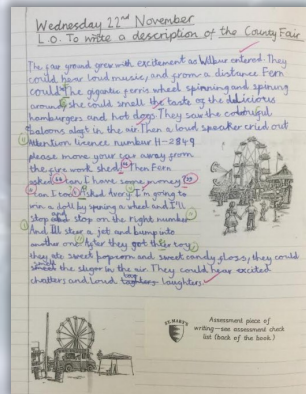 Wednesday 22nd November
L.O. To write a description of the County Fair
The fair ground grew with excitement as Wilbur entered. They
could hear loud music, and from a distance Fern
could The gigantic ferris wheel spinning and spinning
around she could smell the taste of the delicious
hamburgers and hot dogs They saw the colourful
baloons aloft in the air. Then a loud speaker cried out
Attention licence number H-2849
please move your car away from
the fire work shed. Then Fern
asked can I have some money
can I too asked Avery I'm going to
win a doll by spining a wheel and I'll
stop and stop on the right number
And Ill steer a jet and bump into
another one. After they got there toy
they ate sweet popcorn and sweet candy floss, they could
the sugar in the air. They could hear excited
chatters and loud laughters
ST. MARY'S
Assessment piece of
writing—see assessment check
list (back of the book)